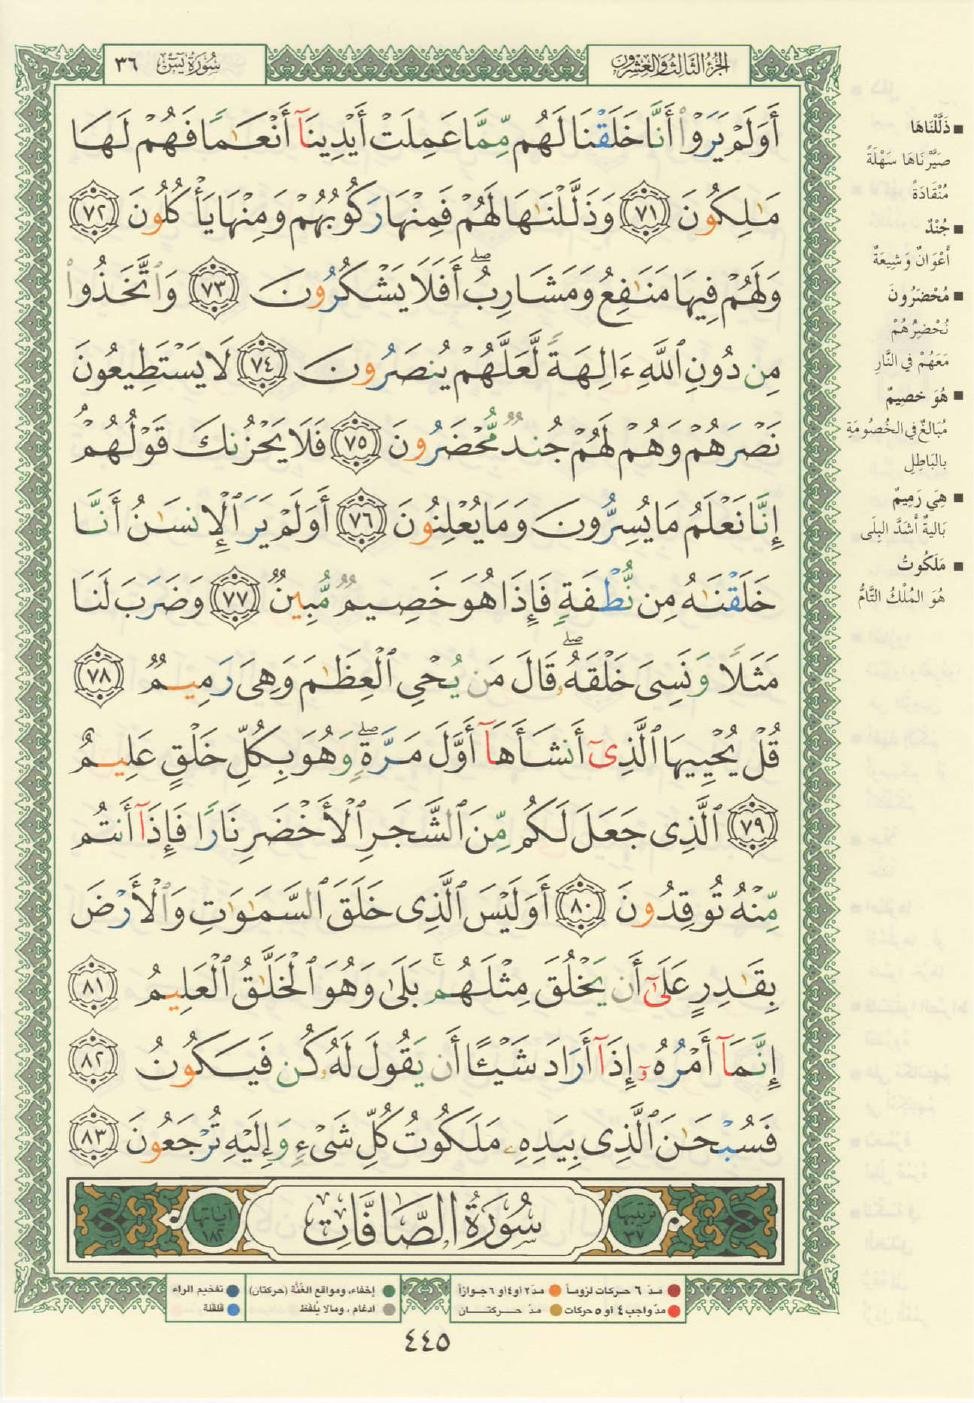 سُورَةُ يسٓ ٣٦
الجُزْءُ الثَّالِثُ وَالعِشْرُونَ
أَوَلَمْ يَرَوْا۟ أَنَّا خَلَقْنَا لَهُم مِّمَّا عَمِلَتْ أَيْدِينَآ أَنْعَٰمًا فَهُمْ لَهَا
مَٰلِكُونَ ٧١ وَذَلَّلْنَٰهَا لَهُمْ فَمِنْهَا رَكُوبُهُمْ وَمِنْهَا يَأْكُلُونَ ٧٢
وَلَهُمْ فِيهَا مَنَٰفِعُ وَمَشَارِبُ ۖ أَفَلَا يَشْكُرُونَ ٧٣ وَٱتَّخَذُوا۟
مِن دُونِ ٱللَّهِ ءَالِهَةً لَّعَلَّهُمْ يُنصَرُونَ ٧٤ لَا يَسْتَطِيعُونَ
نَصْرَهُمْ وَهُمْ لَهُمْ جُندٌ مُّحْضَرُونَ ٧٥ فَلَا يَحْزُنكَ قَوْلُهُمْ
إِنَّا نَعْلَمُ مَا يُسِرُّونَ وَمَا يُعْلِنُونَ ٧٦ أَوَلَمْ يَرَ ٱلْإِنسَٰنُ أَنَّا
خَلَقْنَٰهُ مِن نُّطْفَةٍ فَإِذَا هُوَ خَصِيمٌ مُّبِينٌ ٧٧ وَضَرَبَ لَنَا
مَثَلًا وَنَسِىَ خَلْقَهُۥ ۖ قَالَ مَن يُحْىِ ٱلْعِظَٰمَ وَهِىَ رَمِيمٌ ٧٨
قُلْ يُحْيِيهَا ٱلَّذِىٓ أَنشَأَهَآ أَوَّلَ مَرَّةٍ ۖ وَهُوَ بِكُلِّ خَلْقٍ عَلِيمٌ
٧٩ ٱلَّذِى جَعَلَ لَكُم مِّنَ ٱلشَّجَرِ ٱلْأَخْضَرِ نَارًا فَإِذَآ أَنتُم
مِّنْهُ تُوقِدُونَ ٨٠ أَوَلَيْسَ ٱلَّذِى خَلَقَ ٱلسَّمَٰوَٰتِ وَٱلْأَرْضَ
بِقَٰدِرٍ عَلَىٰٓ أَن يَخْلُقَ مِثْلَهُم ۚ بَلَىٰ وَهُوَ ٱلْخَلَّٰقُ ٱلْعَلِيمُ ٨١
إِنَّمَآ أَمْرُهُۥٓ إِذَآ أَرَادَ شَيْـًٔا أَن يَقُولَ لَهُۥ كُن فَيَكُونُ ٨٢
فَسُبْحَٰنَ ٱلَّذِى بِيَدِهِۦ مَلَكُوتُ كُلِّ شَىْءٍ وَإِلَيْهِ تُرْجَعُونَ ٨٣
ترتيبها ٣٧
سُورَةُ الصَّافَّاتِ
آياتها ١٨٢
■ ذَلَّلْنَاهَا
صَيَّرْنَاهَا سَهْلَةً
مُنْقَادَةً
■ جُنْدٌ
أَعْوَانٌ وَشِيعَةٌ
■ مُحْضَرُونَ
نُحْضِرُهُمْ
مَعَهُمْ فِي النَّارِ
■ هُوَ خَصِيمٌ
مُبَالِغٌ فِي الخُصُومَةِ
بالبَاطِلِ
■ هِيَ رَمِيمٌ
بَالِيةٌ أَشَدَّ البِلَى
■ مَلَكُوتُ
هُوَ المُلْكُ التَّامُّ
مدّ ٦ حركات لزوماً مدّ ٢ أو ٤ أو ٦ جوازاً
مدّ واجب ٤ أو ٥ حركات مدّ حركتان
إخفاء، ومواقع الغنّة (حركتان) تفخيم الراء
ادغام ، ومالا يُلفظ قلقلة
٤٤٥